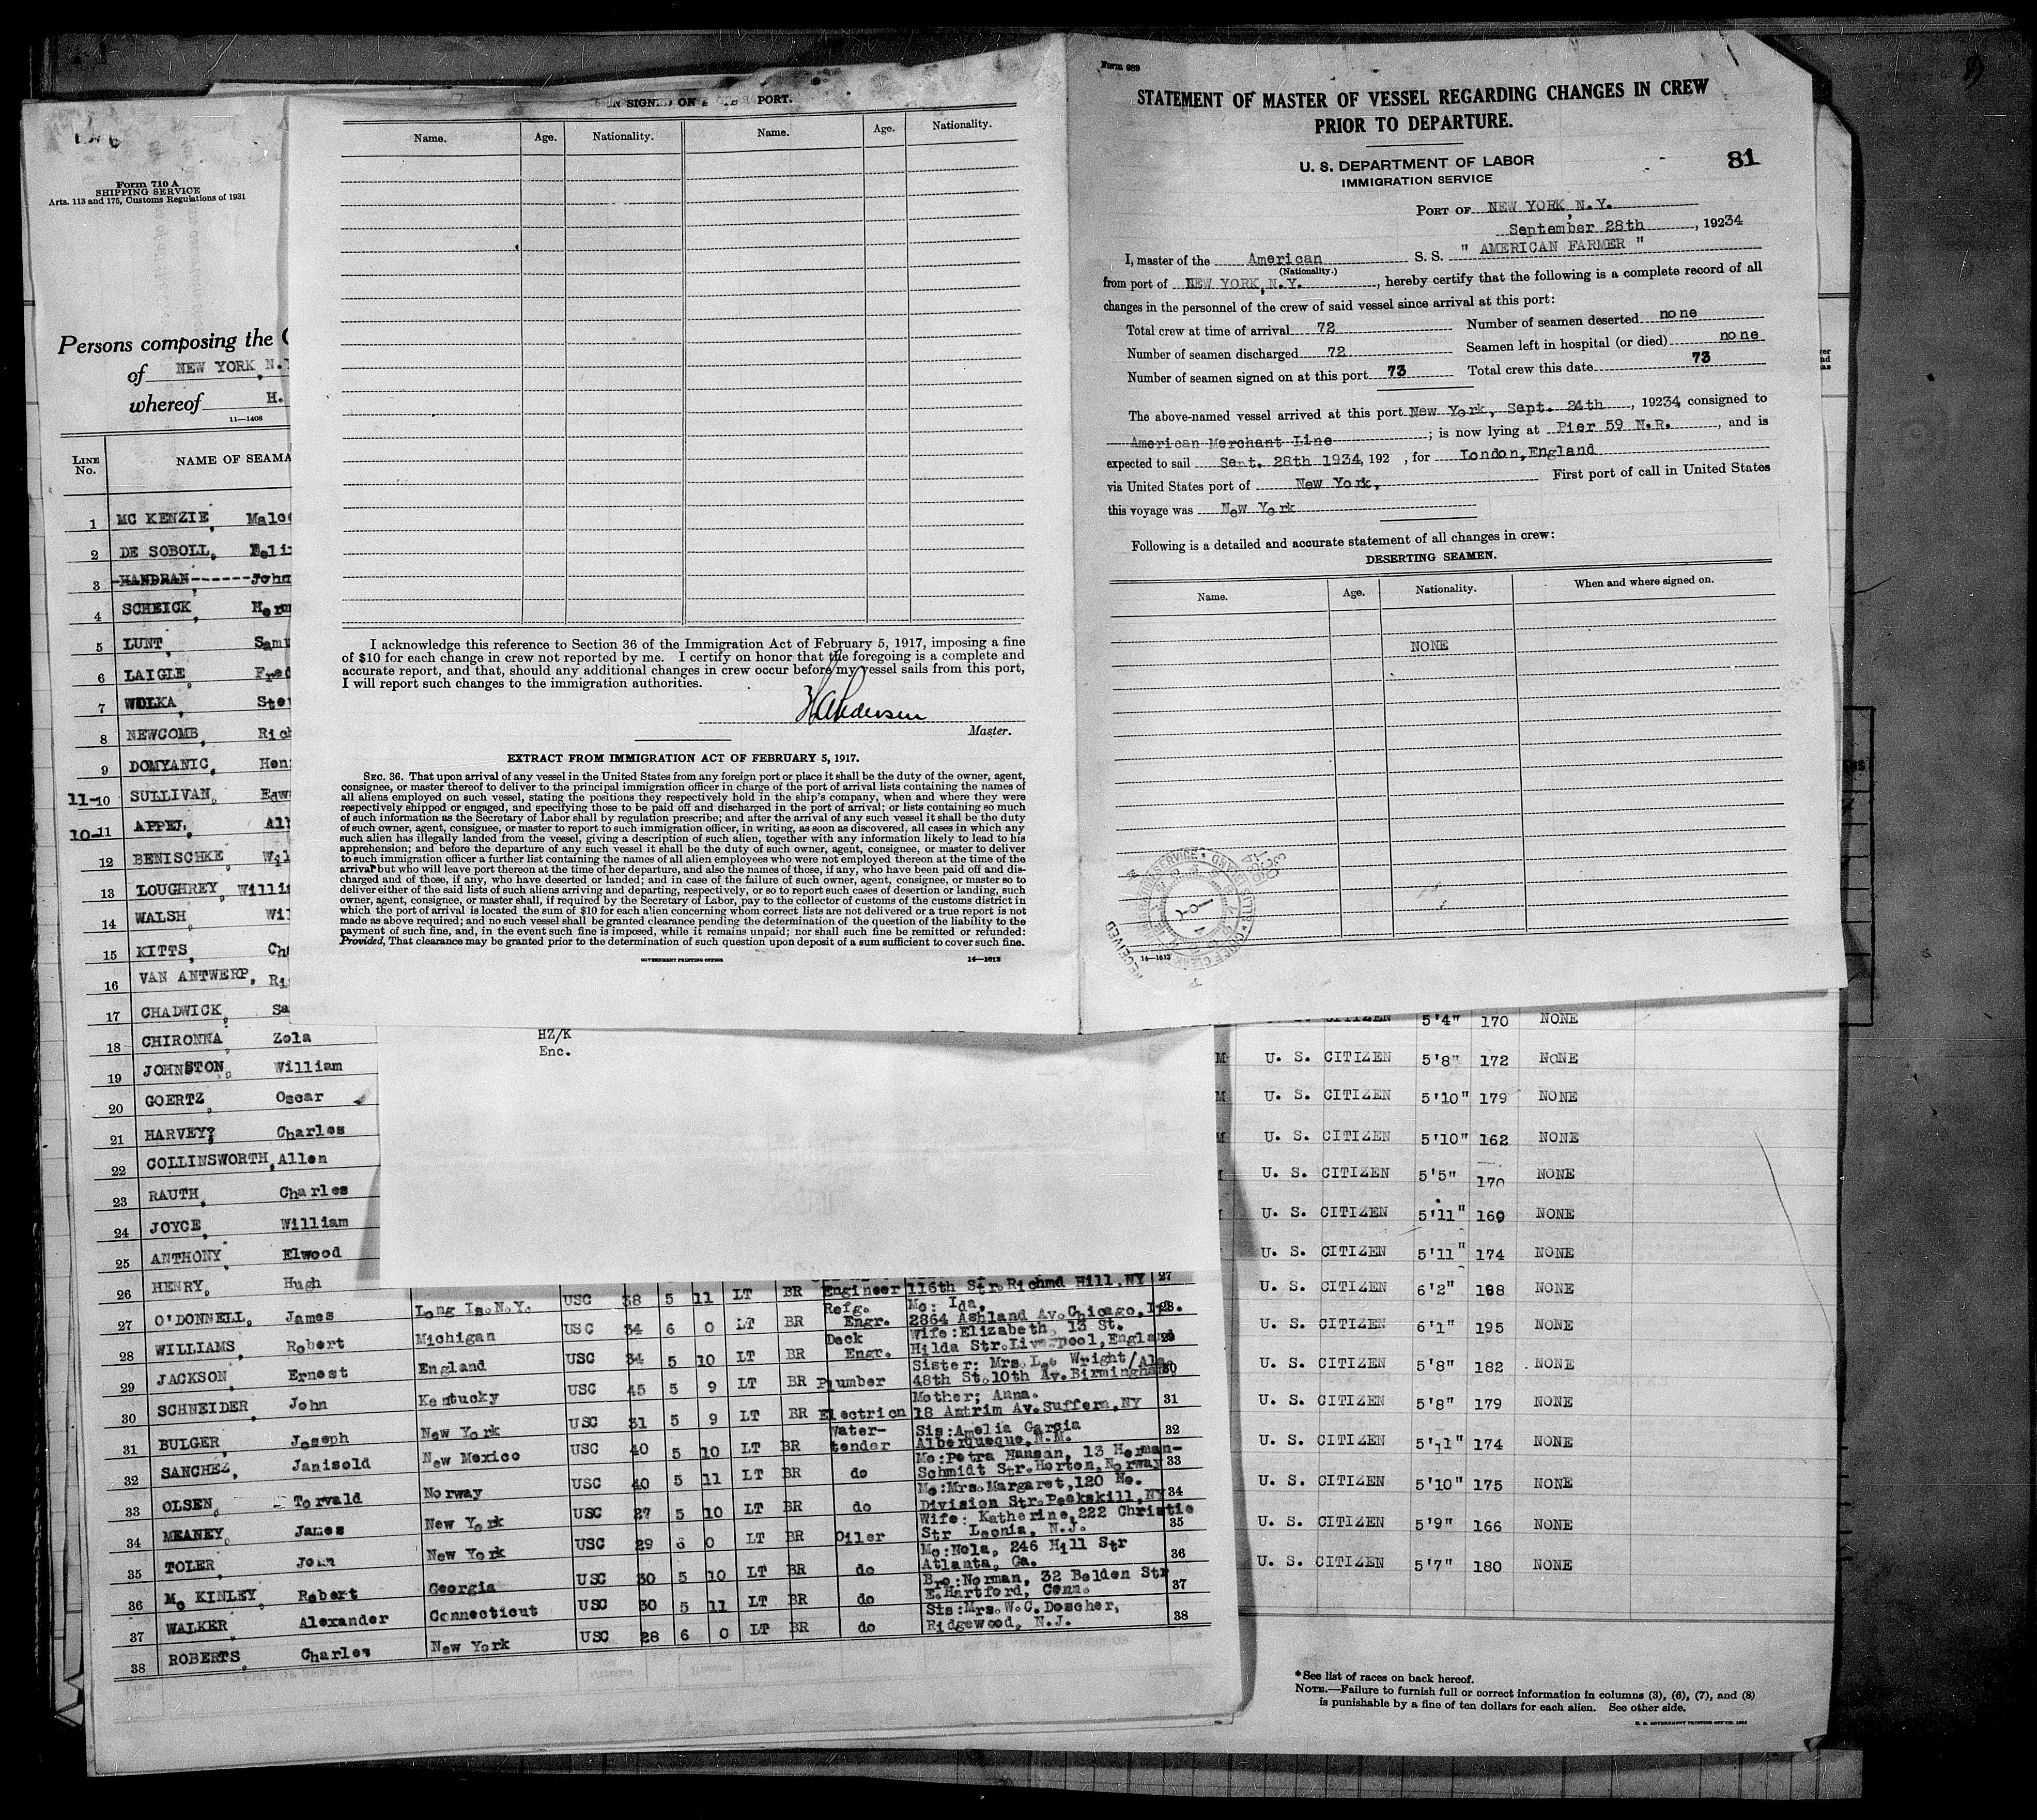 Form 710 A
SHIPPING SERVICE
Arts. 113 and 175, Customs Regulations of 1931
Persons composing the
of NEW YORK, N.
whereof H.
11—1408
LINE No. NAME OF SEAMA
1 MC KENZIE,
2 DE SOBOLL,
3 HANDRAN------John
4 SCHEICK,
5 LUNT,
6 LAIGLE,
7 WOLKA,
8 NEWCOMB,
9 DOMYANIC,
11-10 SULLIVAN,
10-11 APPEL,
12 BENISCHKE,
13 LOUGHREY,
14 WALSH,
15 KITTS,
16 VAN ANTWERP,
17 CHADWICK,
18 CHIRONNA, Zola
19 JOHNSTON, William
20 GOERTZ, Oscar
21 HARVEY? Charles
22 COLLINSWORTH, Allen
23 RAUTH, Charles
24 JOYCE, William
25 ANTHONY, Elwood
26 HENRY, Hugh
27 O'DONNELL, James
28 WILLIAMS, Robert
29 JACKSON, Ernest
30 SCHNEIDER, John
31 BULGER, Joseph
32 SANCHEZ, Janisold
33 OLSEN, Torvald
34 MEANEY, James
35 TOLER, John
36 Mc KINLEY, Robert
37 WALKER, Alexander
38 ROBERTS, Charles
Engineer 116th Str. Richmd Hill, NY 27
Long Is. N.Y. USC 38 5 11 LT BR Refg. Engr. Mo: Ida, 2864 Ashland Av. Chicago, Ill. 28
Michigan USC 34 6 0 LT BR Deck Engr. Wife: Elizabeth, 13 St. Hilda Str. Liverpool, England 29
England USC 34 5 10 LT BR Plumber Sister: Mrs. L. Wright/Ala 48th St. 10th Av. Birmingham 30
Kentucky USC 45 5 9 LT BR Electricn Mother; Anna. 18 Antrim Av. Suffern, NY 31
New York USC 31 5 9 LT BR Water-tender Sis: Amelia Garcia Alberqueque, N.M. 32
New Mexico USC 40 5 10 LT BR do Mo: Petra Hansan, 13 Herman-Schmidt Str. Horton, Norway 33
Norway USC 40 5 11 LT BR do Mo: Mrs. Margaret, 120 No. Division Str. Peekskill, NY 34
New York USC 27 5 10 LT BR Oiler Wife: Katherine, 222 Christie Str Leonia, N.J. 35
New York USC 29 6 0 LT BR do Mo: Nola, 246 Hill Str Atlanta, Ga. 36
Georgia USC 30 5 10 LT BR do Bro: Norman, 32 Belden Str E. Hartford, Conn. 37
Connecticut USC 30 5 11 LT BR do Sis: Mrs. W.C. Doscher, Ridgewood, N.J. 38
New York USC 28 6 0 LT BR
SIGNED ON PORT.
Name. Age. Nationality. Name. Age. Nationality.
I acknowledge this reference to Section 36 of the Immigration Act of February 5, 1917, imposing a fine
of $10 for each change in crew not reported by me. I certify on honor that the foregoing is a complete and
accurate report, and that, should any additional changes in crew occur before my vessel sails from this port,
I will report such changes to the immigration authorities.
Master.
EXTRACT FROM IMMIGRATION ACT OF FEBRUARY 5, 1917.
SEC. 36. That upon arrival of any vessel in the United States from any foreign port or place it shall be the duty of the owner, agent,
consignee, or master thereof to deliver to the principal immigration officer in charge of the port of arrival lists containing the names of
all aliens employed on such vessel, stating the positions they respectively hold in the ship's company, when and where they were
respectively shipped or engaged, and specifying those to be paid off and discharged in the port of arrival; or lists containing so much
of such information as the Secretary of Labor shall by regulation prescribe; and after the arrival of any such vessel it shall be the duty
of such owner, agent, consignee, or master to report to such immigration officer, in writing, as soon as discovered, all cases in which any
such alien has illegally landed from the vessel, giving a description of such alien, together with any information likely to lead to his
apprehension; and before the departure of any such vessel it shall be the duty of such owner, agent, consignee, or master to deliver
to such immigration officer a further list containing the names of all alien employees who were not employed thereon at the time of the
arrival but who will leave port thereon at the time of her departure, and also the names of those, if any, who have been paid off and dis-
charged and of those, if any, who have deserted or landed; and in case of the failure of such owner, agent, consignee, or master so to
deliver either of the said lists of such aliens arriving and departing, respectively, or so to report such cases of desertion or landing, such
owner, agent, consignee, or master shall, if required by the Secretary of Labor, pay to the collector of customs of the customs district in
which the port of arrival is located the sum of $10 for each alien concerning whom correct lists are not delivered or a true report is not
made as above required; and no such vessel shall be granted clearance pending the determination of the question of the liability to the
payment of such fine, and, in the event such fine is imposed, while it remains unpaid; nor shall such fine be remitted or refunded:
Provided, That clearance may be granted prior to the determination of such question upon deposit of a sum sufficient to cover such fine.
GOVERNMENT PRINTING OFFICE 14—1613
HZ/K
Enc.
Form 689
STATEMENT OF MASTER OF VESSEL REGARDING CHANGES IN CREW
PRIOR TO DEPARTURE.
U. S. DEPARTMENT OF LABOR
IMMIGRATION SERVICE
81
PORT OF NEW YORK, N.Y.
September 28th, 19234
I, master of the American S. S. " AMERICAN FARMER "
(Nationality.)
from port of NEW YORK, N.Y., hereby certify that the following is a complete record of all
changes in the personnel of the crew of said vessel since arrival at this port:
Total crew at time of arrival 72 Number of seamen deserted none
Number of seamen discharged 72 Seamen left in hospital (or died) none
Number of seamen signed on at this port 73 Total crew this date 73
The above-named vessel arrived at this port New York, Sept. 24th, 19234, consigned to
American Merchant Line; is now lying at Pier 59 N.R., and is
expected to sail Sept. 28th 1934, 192 , for London, England
via United States port of New York, First port of call in United States
this voyage was New York
Following is a detailed and accurate statement of all changes in crew:
DESERTING SEAMEN.
Name. Age. Nationality. When and where signed on.
NONE
RECEIVED
14—1613
U. S. CITIZEN 5'4" 170 NONE
U. S. CITIZEN 5'8" 172 NONE
U. S. CITIZEN 5'10" 179 NONE
U. S. CITIZEN 5'10" 162 NONE
U. S. CITIZEN 5'5" 170 NONE
U. S. CITIZEN 5'11" 160 NONE
U. S. CITIZEN 5'11" 174 NONE
U. S. CITIZEN 6'2" 188 NONE
U. S. CITIZEN 6'1" 195 NONE
U. S. CITIZEN 5'8" 182 NONE
U. S. CITIZEN 5'8" 179 NONE
U. S. CITIZEN 5'11" 174 NONE
U. S. CITIZEN 5'10" 175 NONE
U. S. CITIZEN 5'9" 166 NONE
U. S. CITIZEN 5'7" 180 NONE
*See list of races on back hereof.
NOTE.—Failure to furnish full or correct information in columns (3), (6), (7), and (8)
is punishable by a fine of ten dollars for each alien. See other side.
U. S. GOVERNMENT PRINTING OFFICE